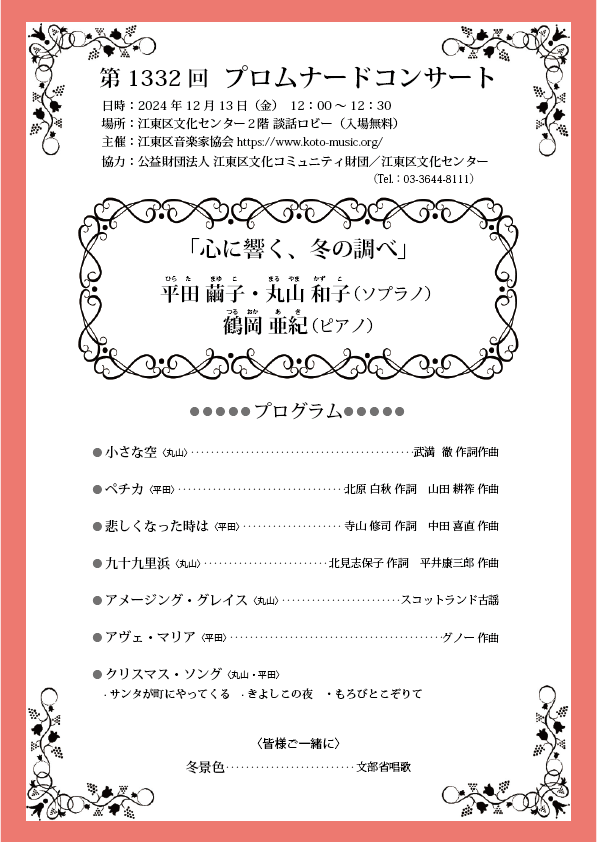 第 1332 回 プロムナードコンサート
日時：2024 年 12 月 13 日（金） 12：00 ～ 12：30
場所：江東区文化センター２階 談話ロビー（入場無料）
主催：江東区音楽家協会 https://www.koto-music.org/
協力：公益財団法人 江東区文化コミュニティ財団／江東区文化センター
（Tel.：03-3644-8111）
「心に響く、冬の調べ」
ひら た まゆ こ まる やま かず こ
平田 繭子・丸山 和子（ソプラノ）
つる おか あ き
鶴岡 亜紀（ピアノ）
●●●●●プログラム●●●●●
●小さな空〈丸山〉‥‥‥‥‥‥‥‥‥‥‥‥‥‥‥‥武満 徹 作詞作曲
●ペチカ〈平田〉‥‥‥‥‥‥‥‥‥‥‥‥北原 白秋 作詞　山田 耕筰 作曲
●悲しくなった時は〈平田〉‥‥‥‥‥‥‥寺山 修司 作詞　中田 喜直 作曲
●九十九里浜〈丸山〉‥‥‥‥‥‥‥‥‥北見志保子 作詞　平井康三郎 作曲
●アメージング・グレイス〈丸山〉‥‥‥‥‥‥‥‥スコットランド古謡
●アヴェ・マリア〈平田〉‥‥‥‥‥‥‥‥‥‥‥‥‥‥‥グノー 作曲
●クリスマス・ソング〈丸山・平田〉
・サンタが町にやってくる　・きよしこの夜　・もろびとこぞりて
〈皆様ご一緒に〉
冬景色‥‥‥‥‥‥‥‥‥文部省唱歌